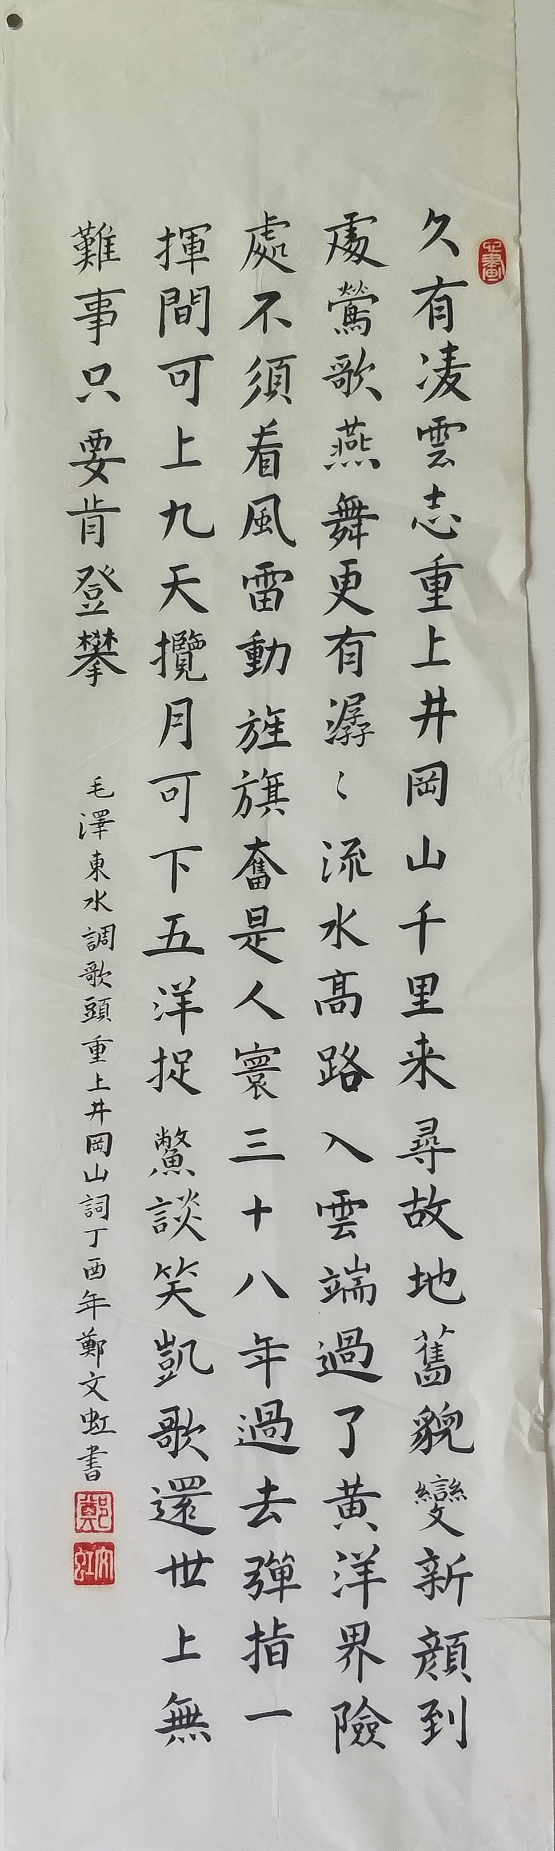 久有凌雲志重上井岡山千里来尋故地舊貌變新顔到
處鶯歌燕舞更有潺〻流水高路入雲端過了黄洋界險
處不須看風雷動旌旗奮是人寰三十八年過去彈指一
揮間可上九天攬月可下五洋捉鱉談笑凱歌還世上無
難事只要肯登攀
毛澤東水調歌頭重上井岡山詞丁酉年鄭文虹書
鄭
文虹